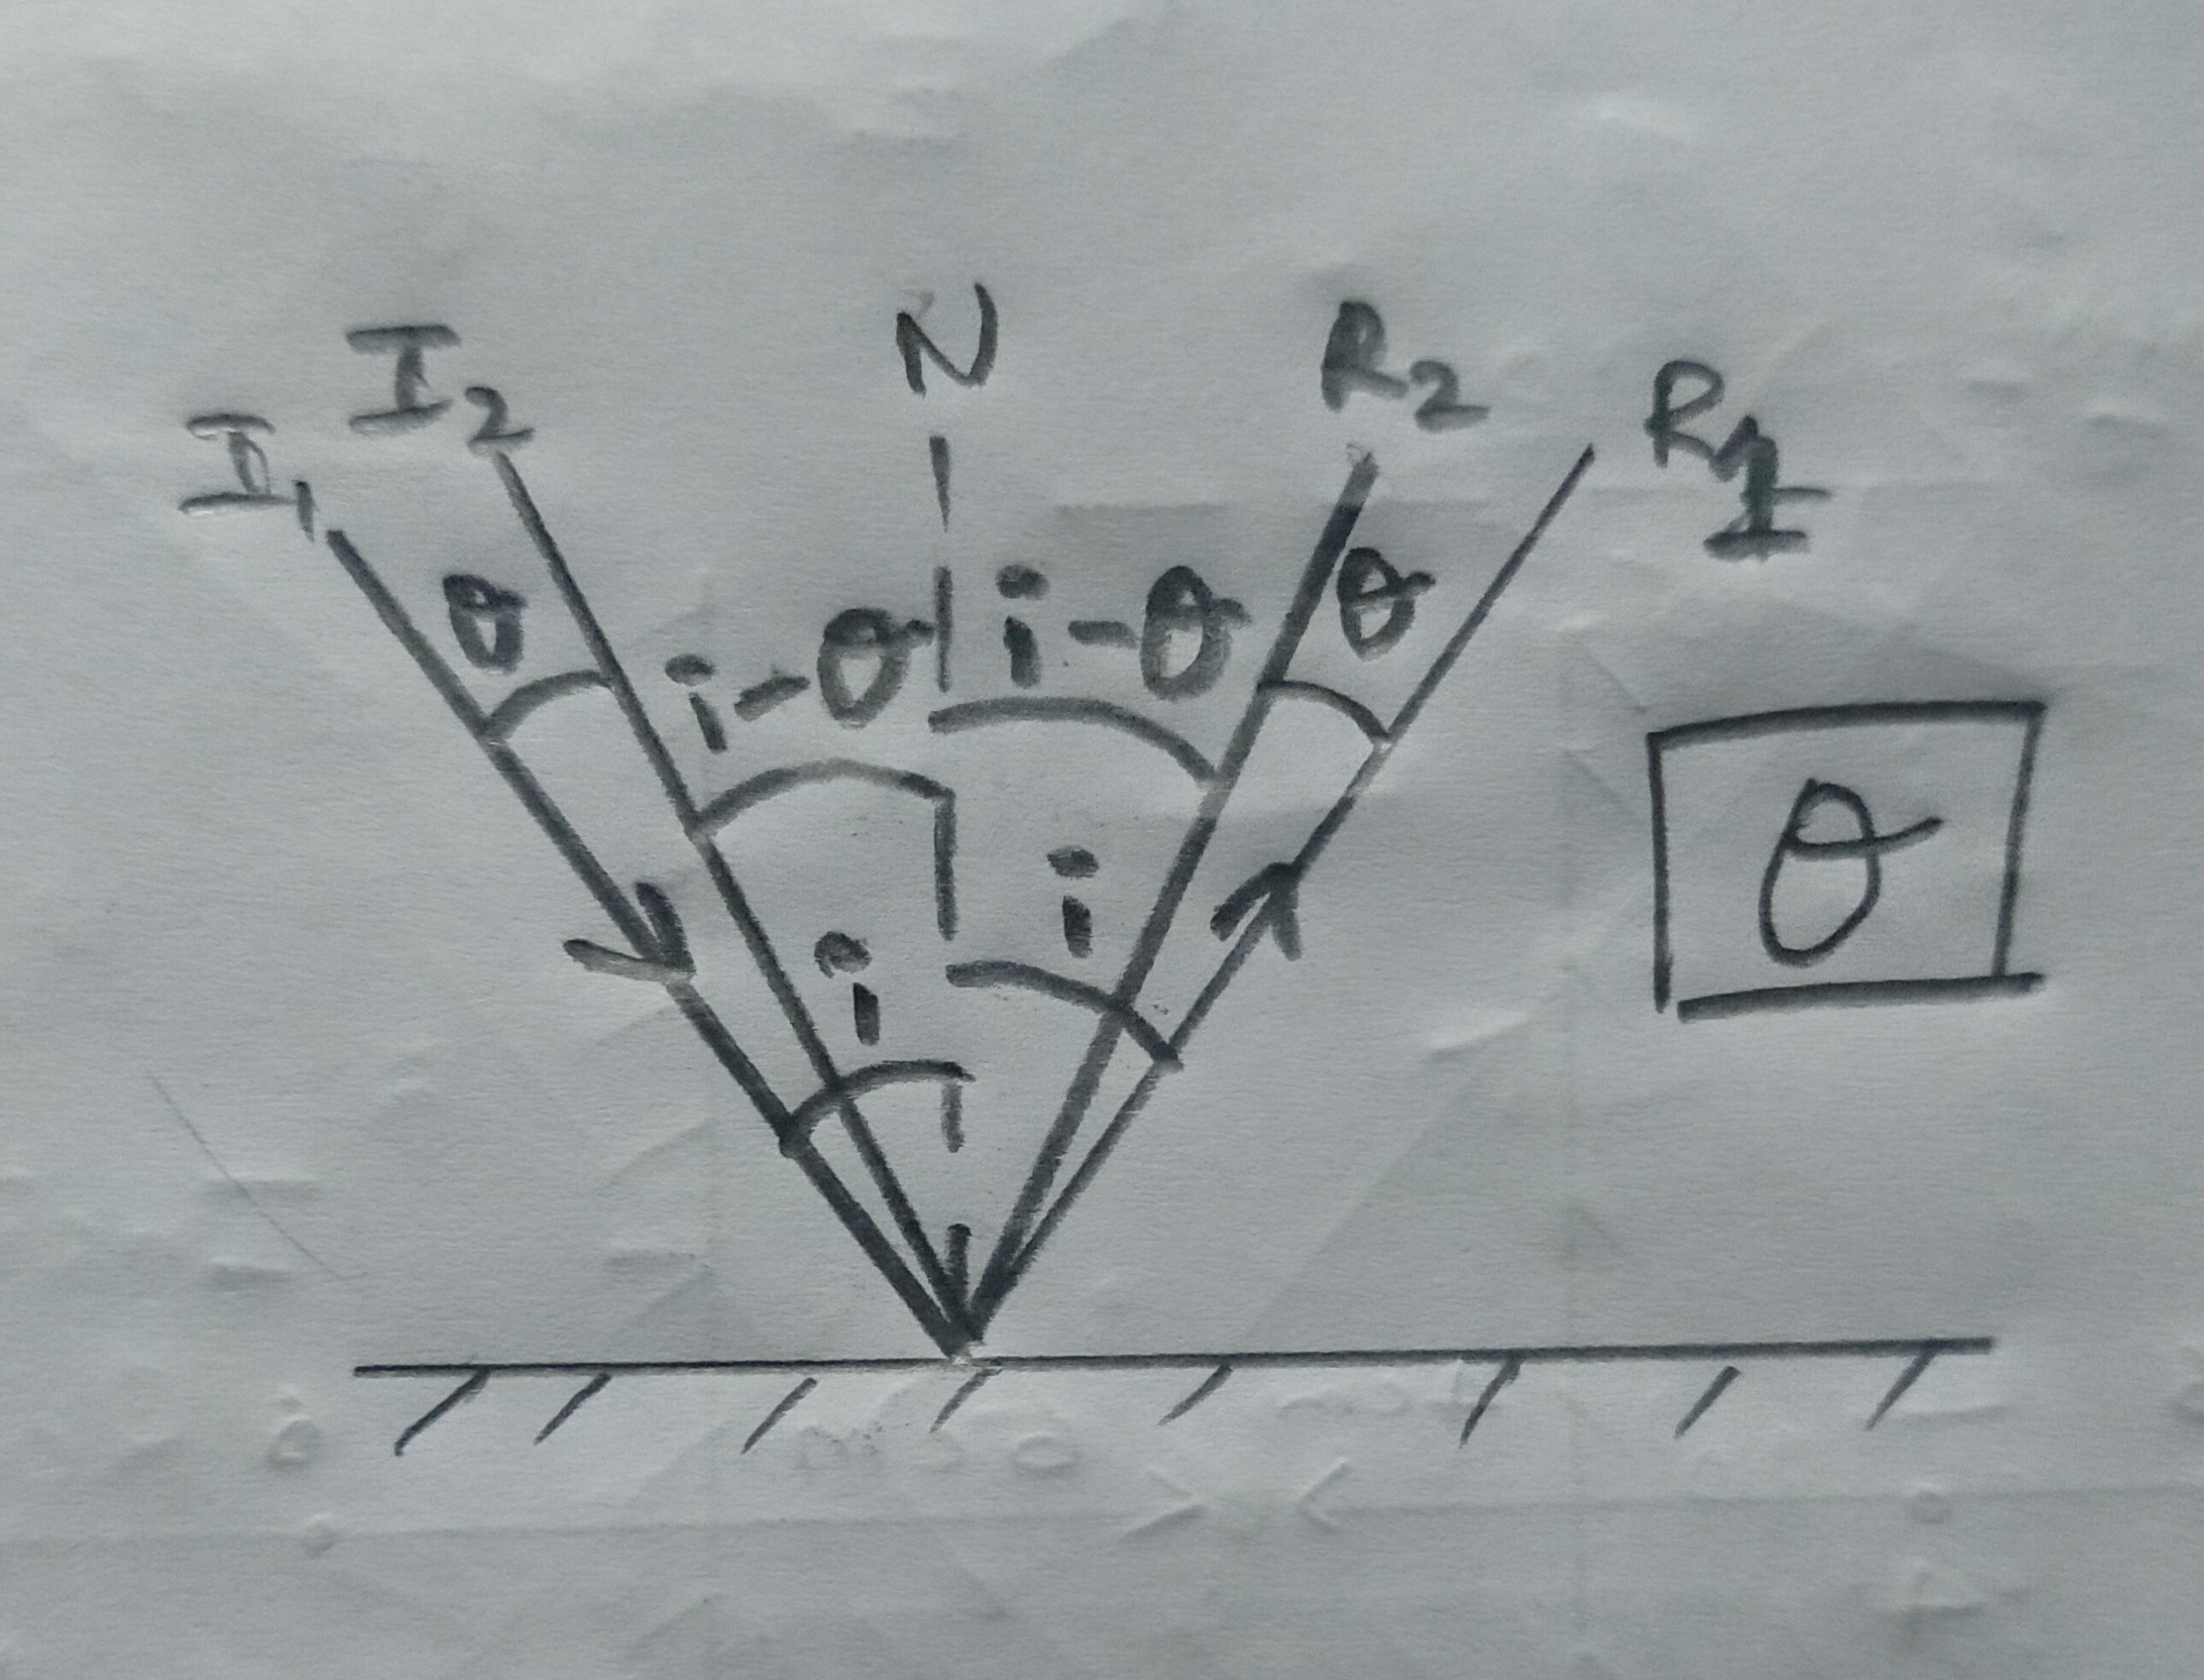 I₁ I₂ N R₂ R₁
θ i-θ i-θ θ
i i
θ